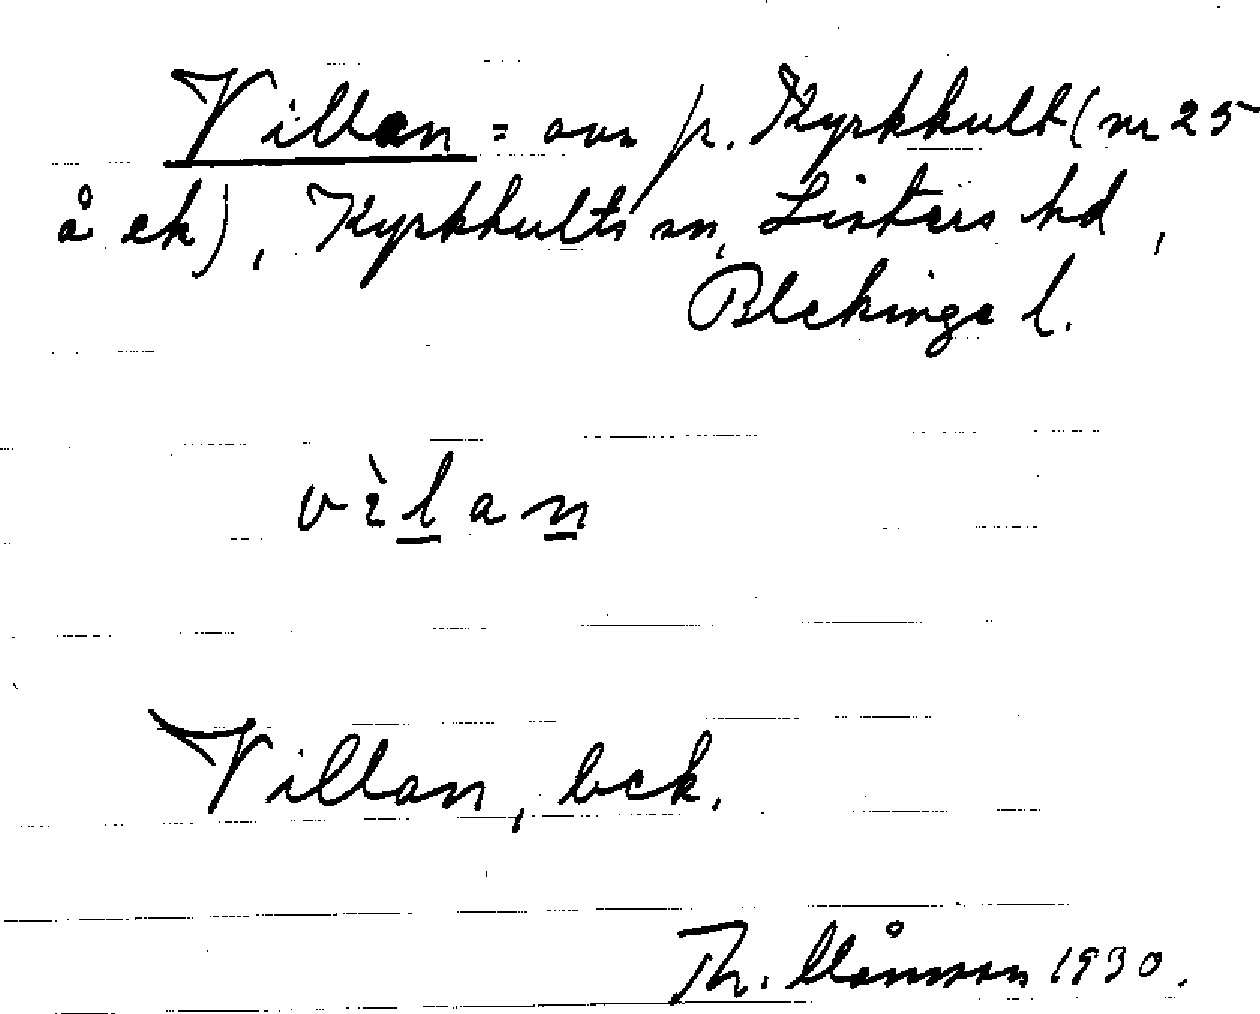 Villan = avs p. Kyrkhult (nr 25
å ek), Kyrkhults sn, Listers hd,
Blekinge l.
vìlan
Villan, bek.
Th. Månsson 1930.